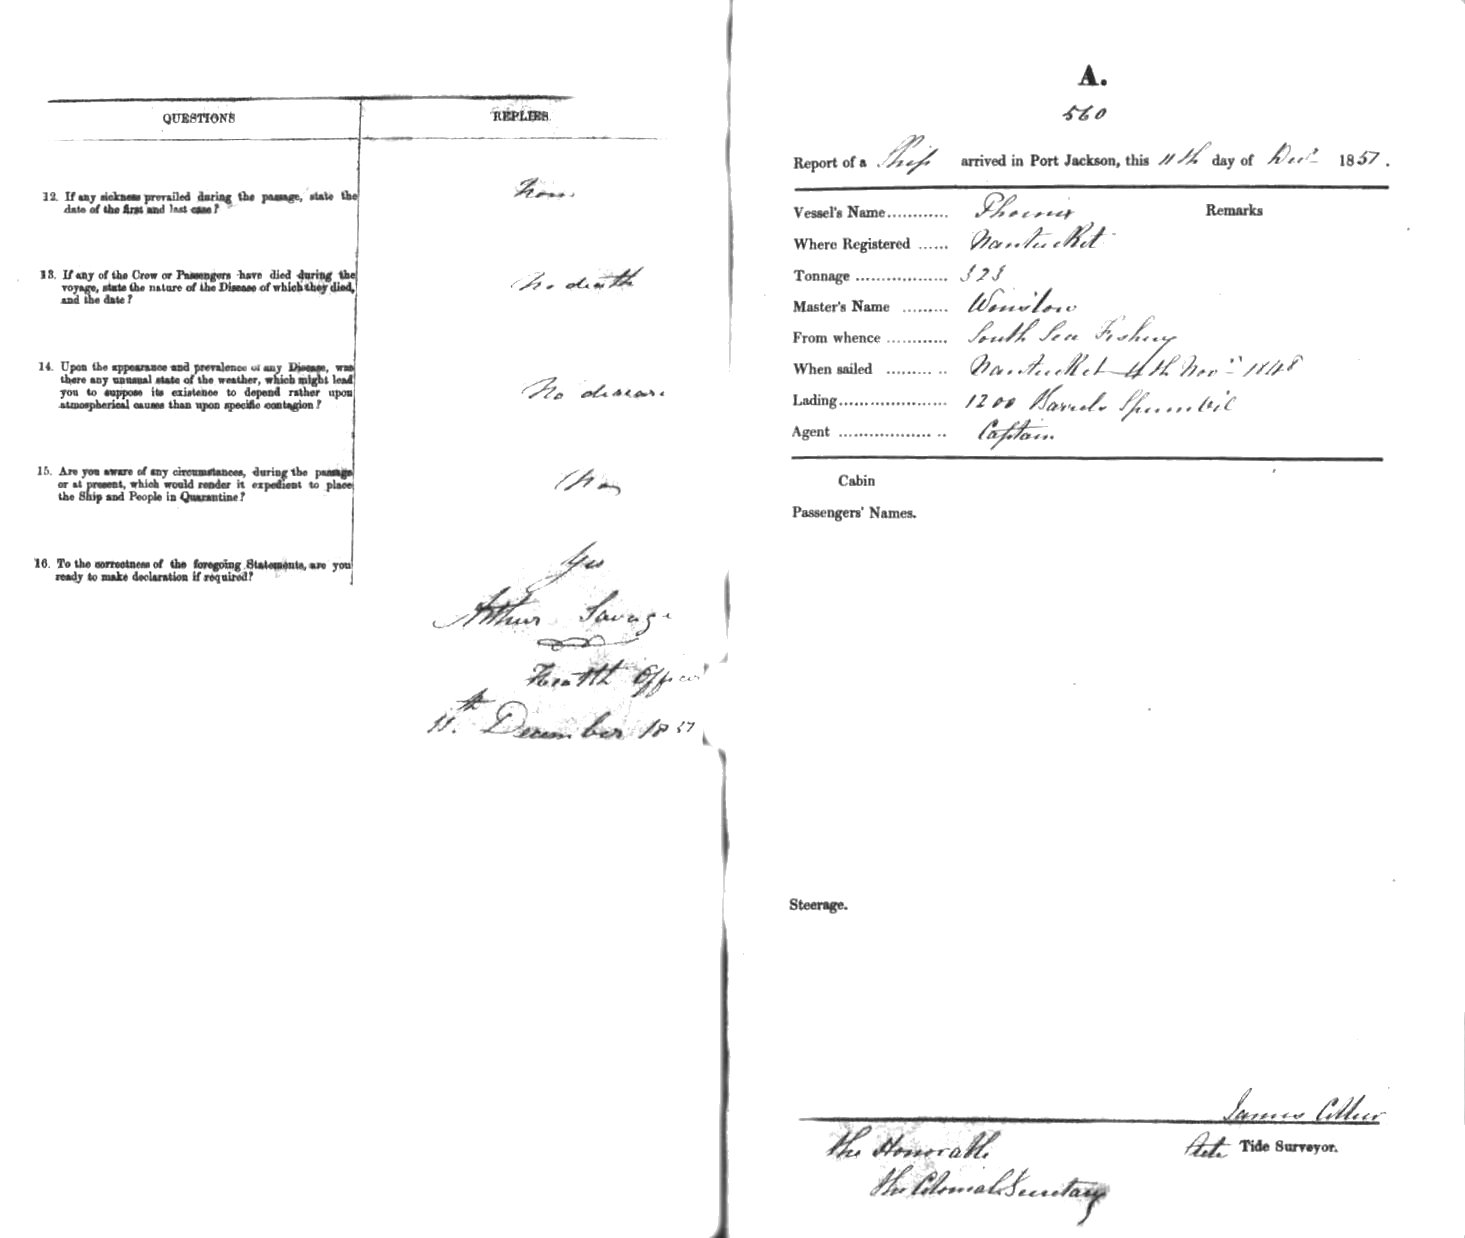 QUESTIONS
REPLIES
12. If any sickness prevailed during the passage, state the
date of the first and last case?
None
13. If any of the Crew or Passengers have died during the
voyage, state the nature of the Disease of which they died,
and the date?
No death
14. Upon the appearance and prevalence of any Disease, was
there any unusual state of the weather, which might lead
you to suppose its existence to depend rather upon
atmospherical causes than upon specific contagion?
No disease
15. Are you aware of any circumstances, during the passage
or at present, which would render it expedient to place
the Ship and People in Quarantine?
16. To the correctness of the foregoing Statements, are you
ready to make declaration if required?
Yes
Arthur Savage
Health Officer
11th December 1851
A.
560
Report of a Ship arrived in Port Jackson, this 11th day of Decr 1851.
Vessel's Name............ Phoenix
Remarks
Where Registered ...... Nantucket
Tonnage .................. 323
Master's Name ......... Winslow
From whence ............ South Sea Fishery
When sailed ......... .. Nantucket 4th Novr 1848
Lading...................... 1200 Barrels Sperm Oil
Agent .................. .. Captain
Cabin
Passengers' Names.
Steerage.
James
Tide Surveyor.
The Honorable
The Colonial Secretary